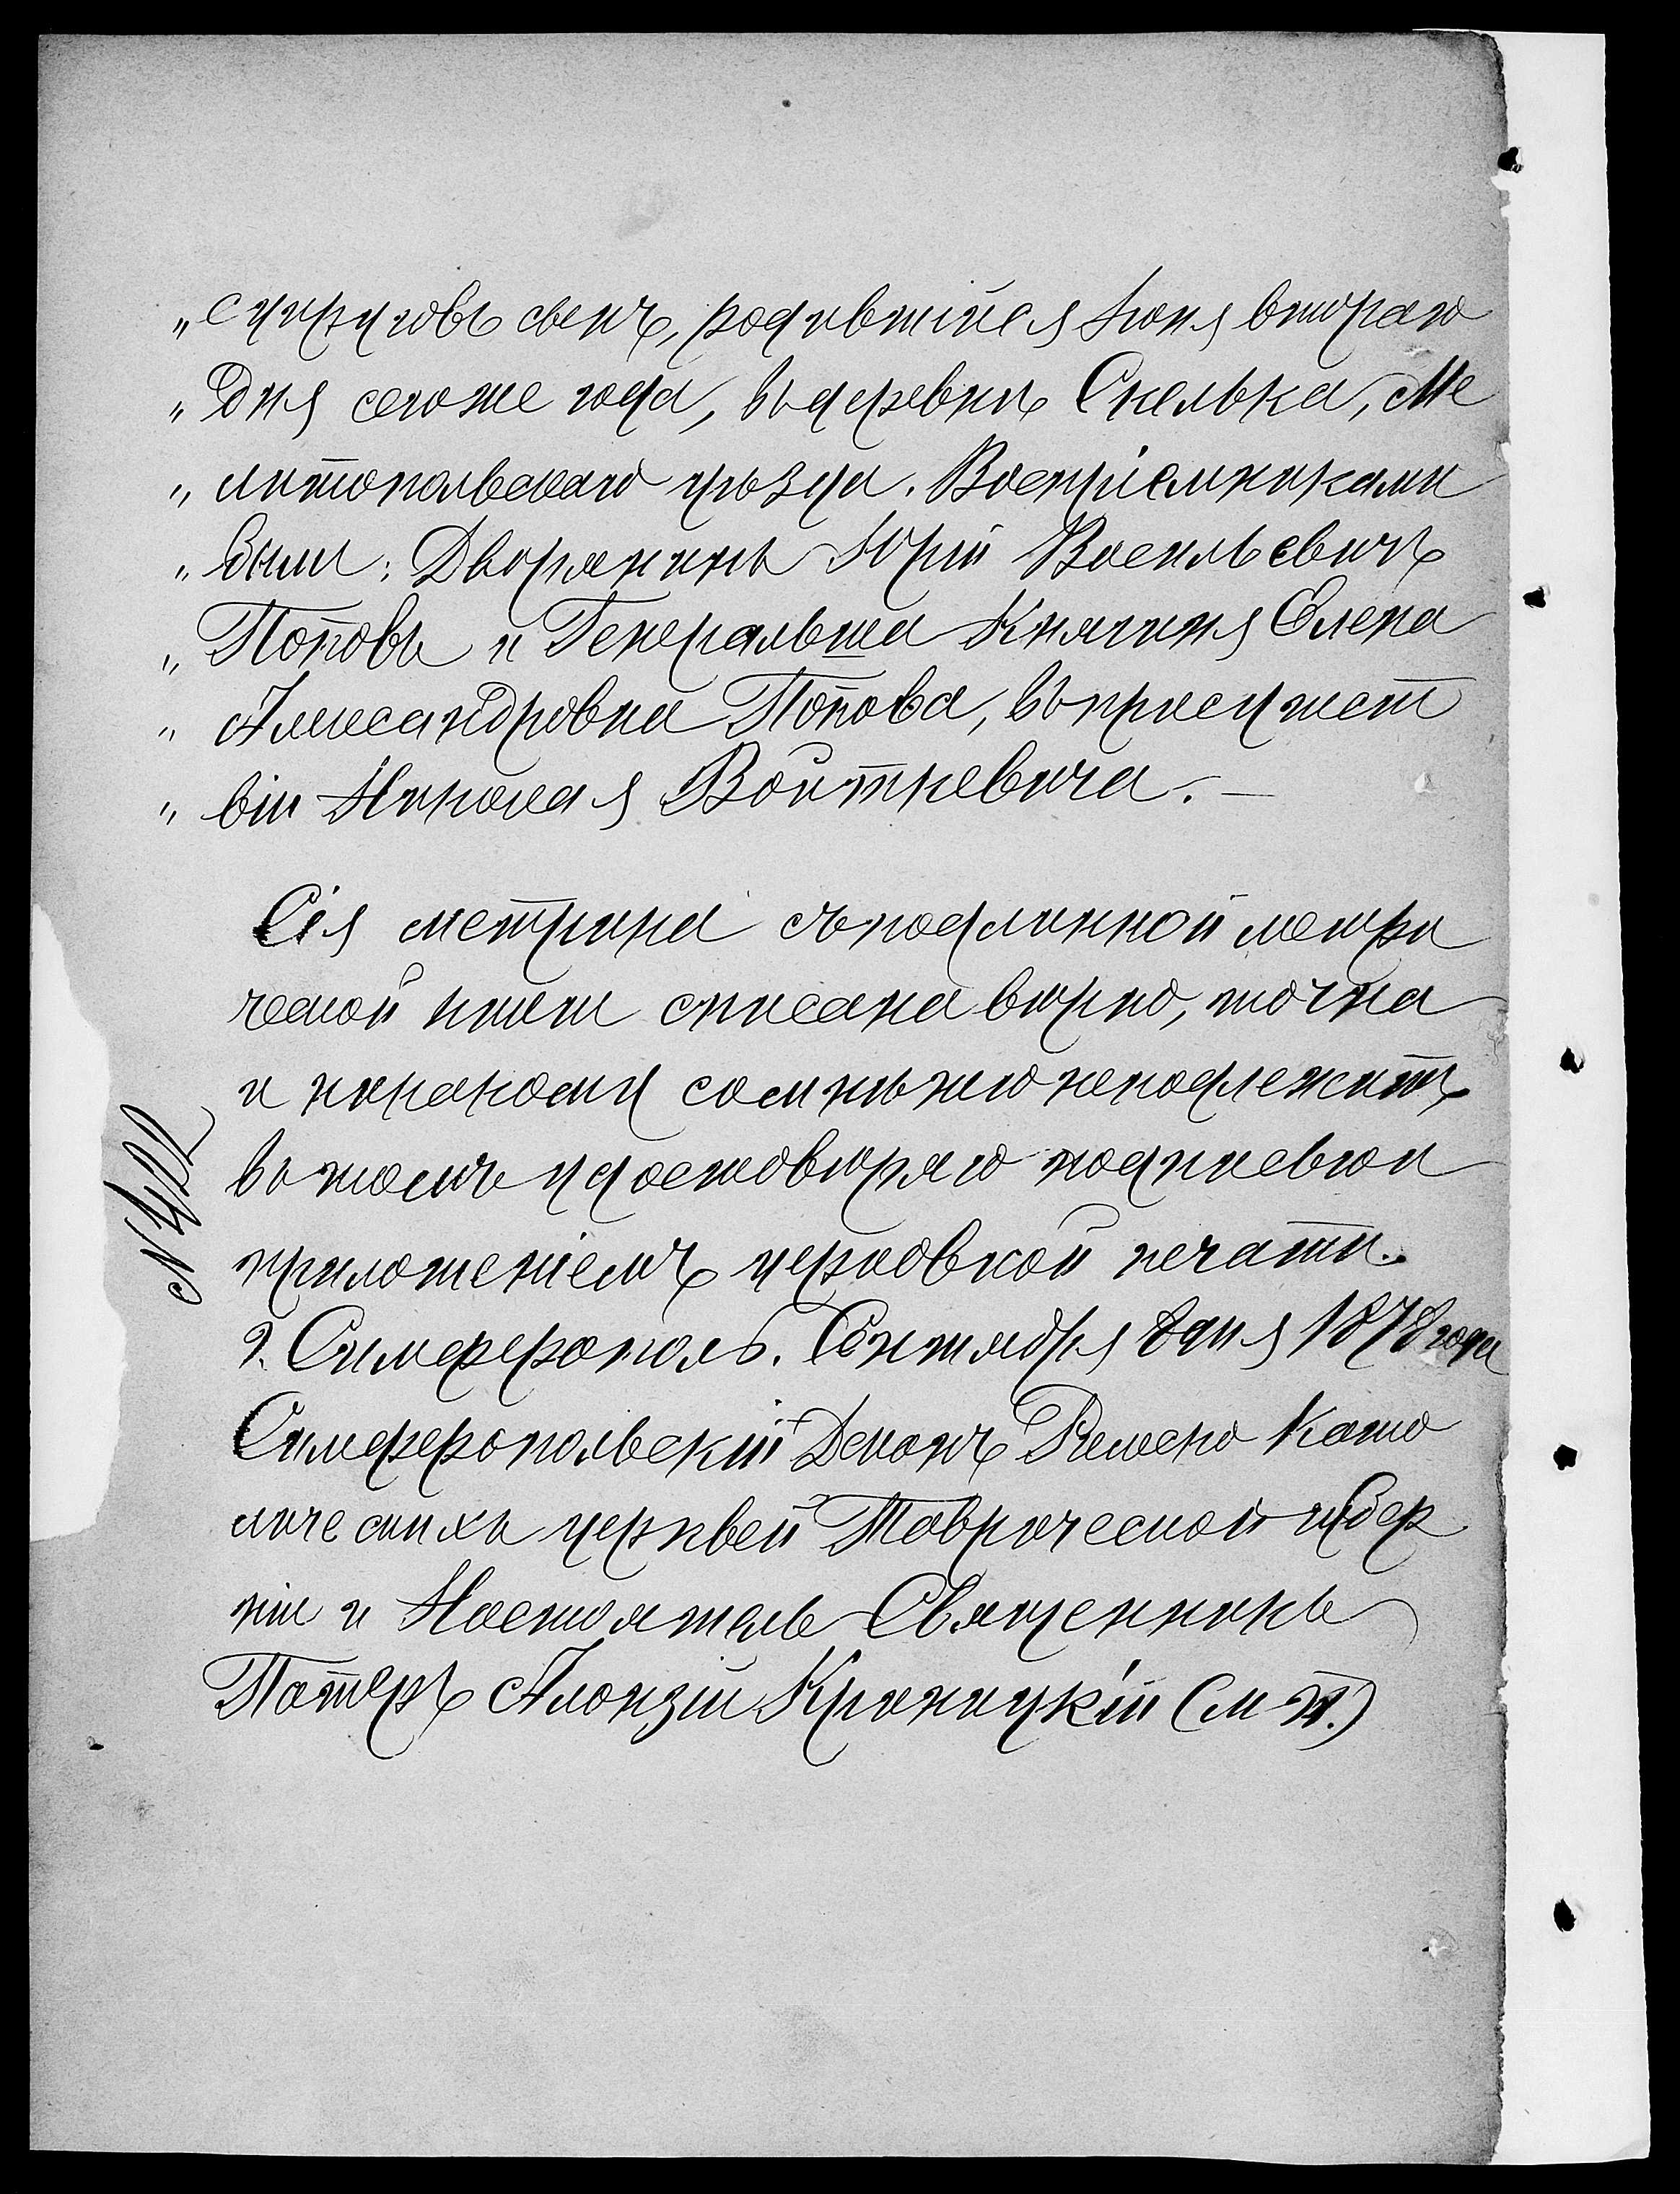 „супруговъ сынъ, родившійся Іюня втораго
„дня сегоже года, въ деревнѣ Скелька, Ме
„литопольскаго уѣзда. Воспріемниками
„были: Дворянинъ Юрій Васильевичъ
„Поповъ и Генеральша Княгиня Елена
„Александровна Попова, въ присутст
„віи Николая Войткевича. —
Сія метрика съ подлинной метри
ческой книги списана вѣрно, точна
и никакому сомнѣнію неподлежитъ
въ томъ удостовѣряю подписью и
приложеніемъ церковной печати.
г. Симферополь. Сентября 8 дня 1878 года
№ 402
Симферопольскій Деканъ Римско Като
лическихъ церквей Таврической губер
ніи и Настоятель Священникъ
Патеръ Алоизій Криницкій (М. П.)